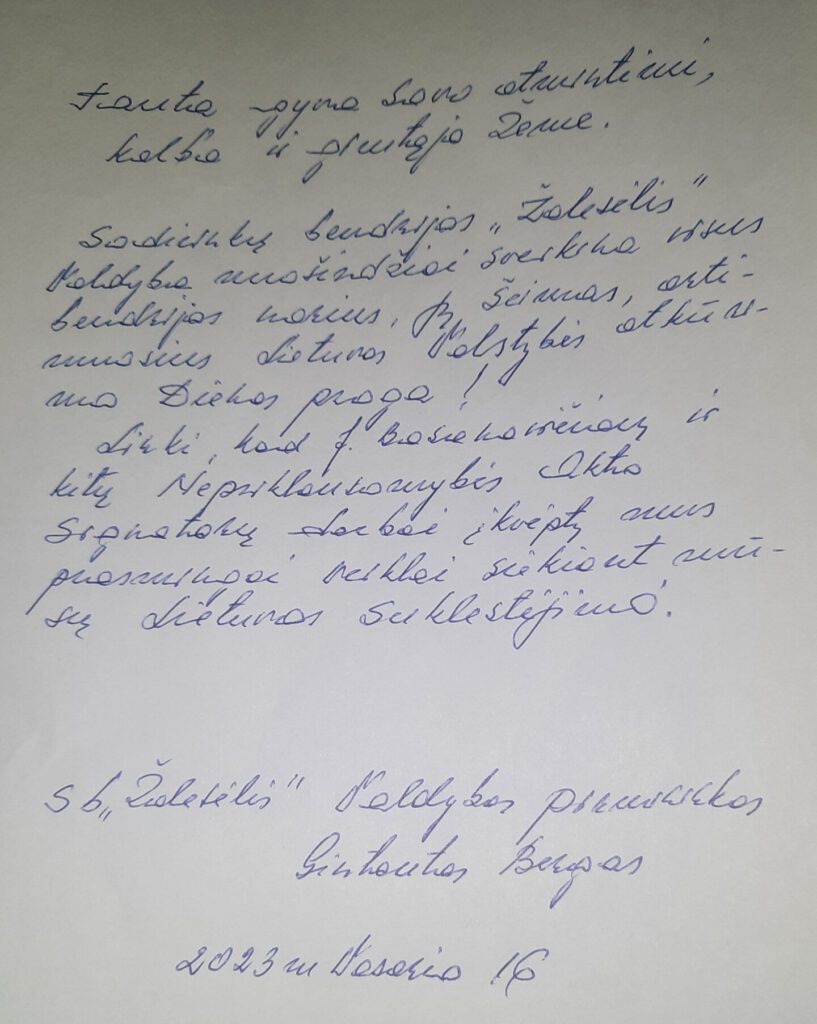 Tauta gyva savo atmintimi,
kalba ir gimtąja Žeme.
Sodininkų bendrijos „Žalesėlis"
Valdyba nuoširdžiai sveikina visus
bendrijos narius, jų šeimas, arti-
muosius Lietuvos Valstybės atkūri-
mo Dienos proga!
Linki, kad J. Basanavičiaus ir
kitų Nepriklausomybės Akto
Signatarų darbai įkvėptų mus
prasmingai veiklai siekiant mū-
sų Lietuvos suklestėjimo.
SB „Žalesėlis" Valdybos pirmininkas
Gintautas Bergas
2023 m Vasario 16